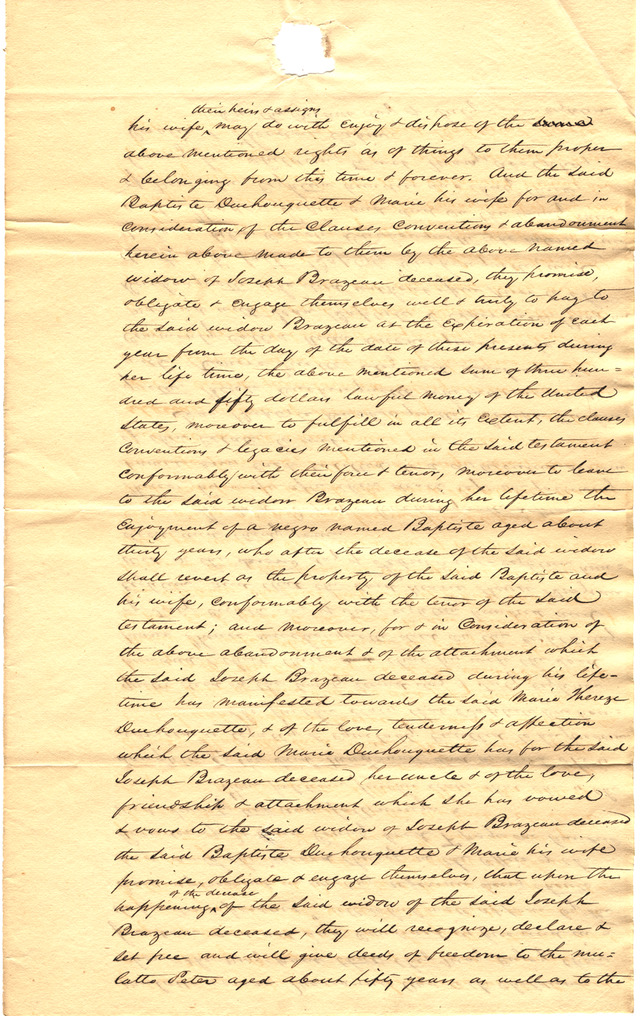 their heirs & assigns
his wife may do with enjoy & dispose of the same
above mentioned rights as of things to them proper
& belonging from this time & forever. And the said
Baptiste Duchouquette & Marie his wife for and in
Consideration of the Clauses Conventions & abandonment
herein above made to them by the above named
widow of Joseph Brazeau deceased, they promise,
obligate & engage themselves well & truly to pay to
the said widow Brazeau at the expiration of each
year from the day of the date of these presents during
her life time, the above mentioned sum of three hun-
dred and fifty dollars lawful money of the United
States, moreover to fulfill in all its extent, the clauses
Conventions & legacies mentioned in the said testament
Conformably with their force & tenor, moreover to leave
to the said widow Brazeau during her lifetime the
enjoyment of a negro named Baptiste aged about
thirty years, who after the decease of the said widow
shall revert as the property of the said Baptiste and
his wife, conformably with the tenor of the said
testament; and moreover, for & in Consideration of
the above abandonment & of the attachment which
the said Joseph Brazeau deceased during his life-
time has manifested towards the said Marie Thereze
Duchouquette, & of the love, tenderness & affection
which the said Marie Duchouquette has for the said
Joseph Brazeau deceased her uncle & of the love,
friendship & attachment which she has vowed
& vows to the said widow of Joseph Brazeau deceased
the said Baptiste Duchouquette & Marie his wife
promise, obligate & engage themselves, that upon the
of the decease
happening of the said widow of the said Joseph
Brazeau deceased, they will recognize, declare &
set free and will give deeds of freedom to the mu-
latto Peter aged about fifty years as well as to the